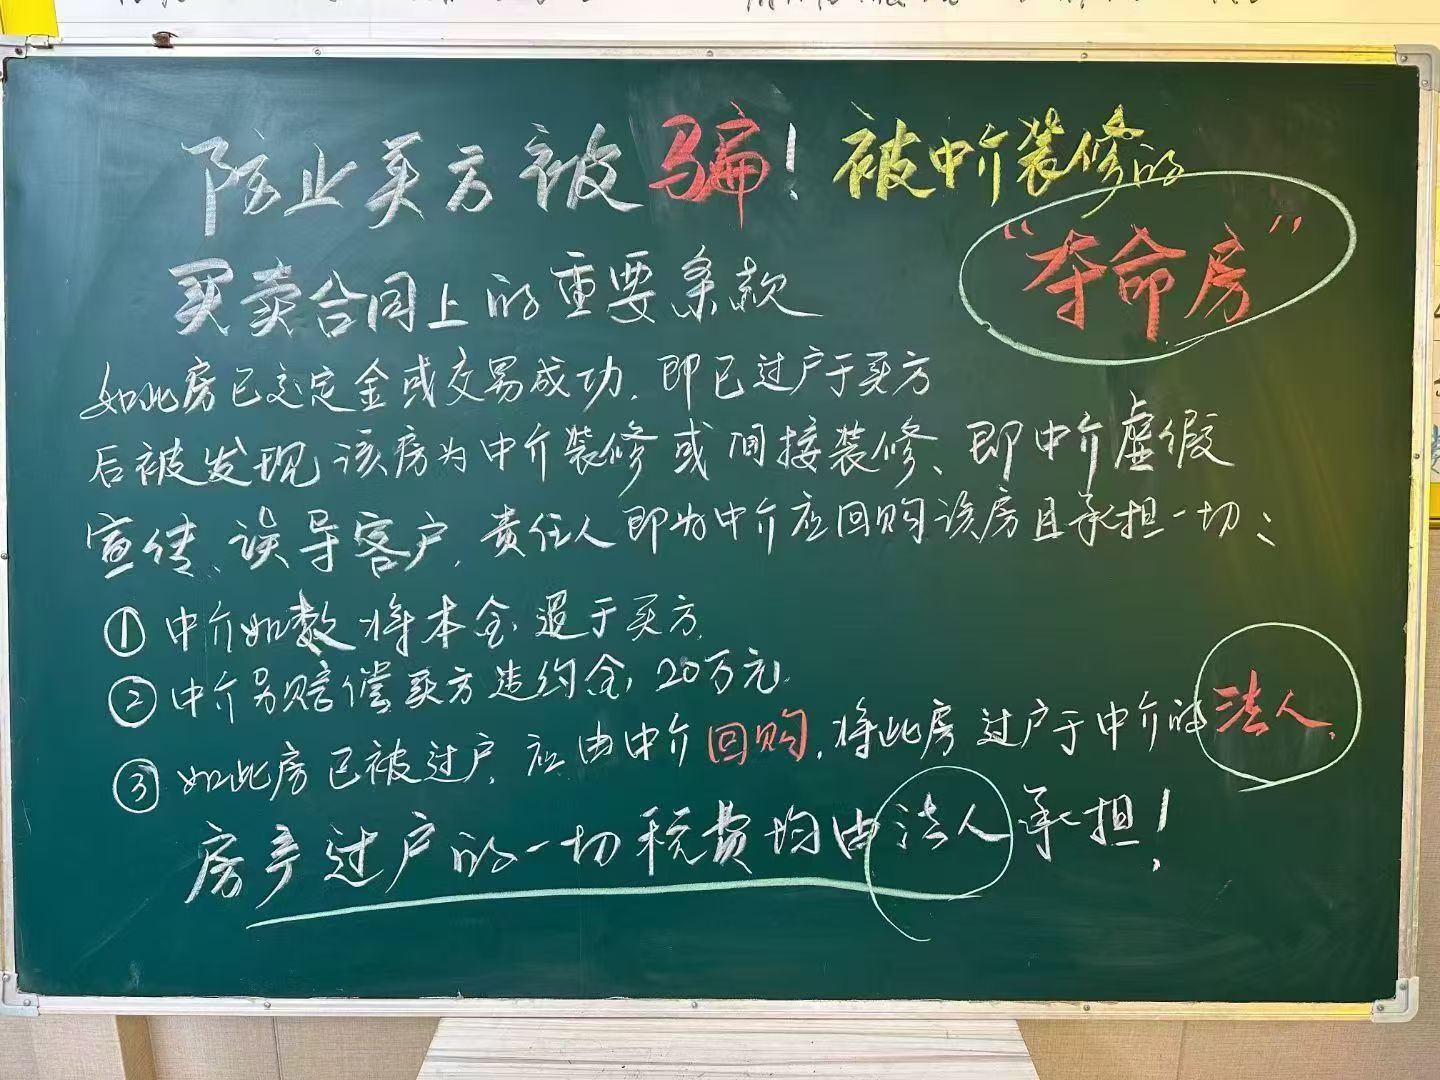 防止买方被骗！被中介装修的
"夺命房"
买卖合同上的重要条款
如此房已交定金或交易成功，即已过户于买方
后被发现该房为中介装修或间接装修、即中介虚假
宣传、误导客户，责任人即为中介应回购该房且承担一切：
①中介如数将本金退于买方.
②中介另赔偿买方违约金20万元.
③如此房已被过户，应由中介回购，将此房过户于中介的法人、
房产过户的一切税费均由法人承担！